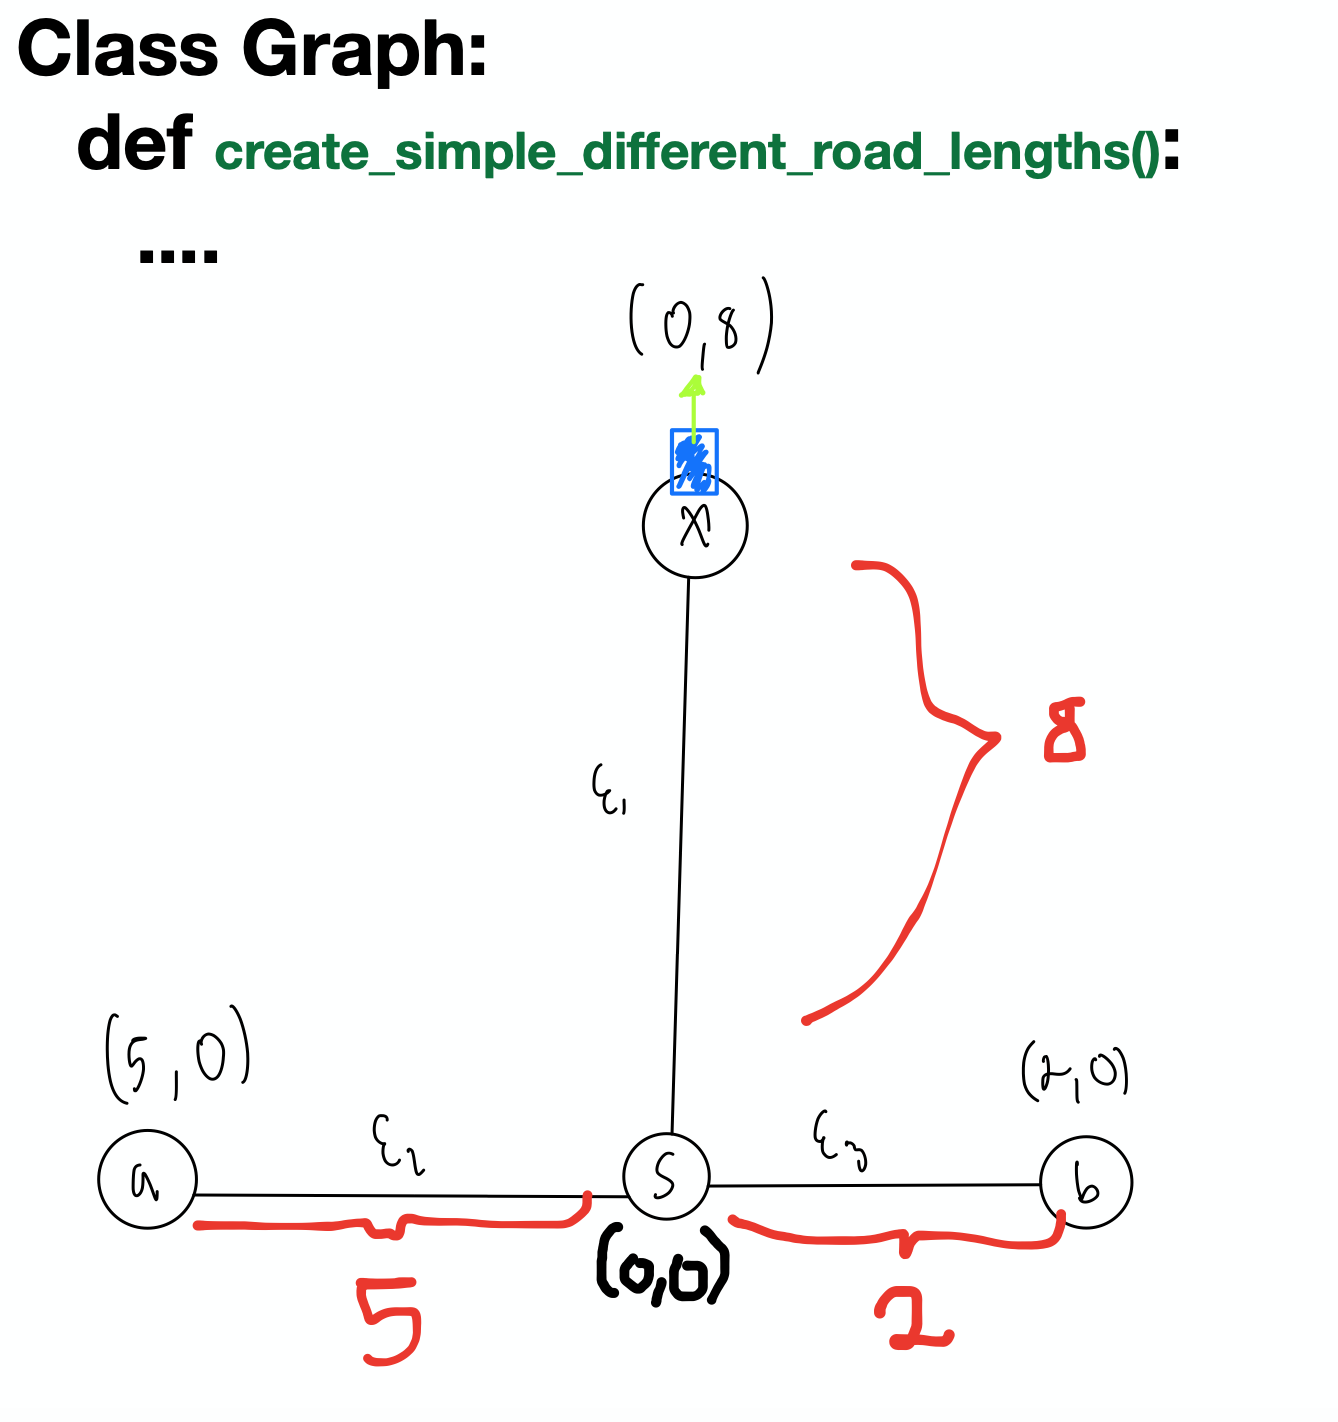 Class Graph:
def create_simple_different_road_lengths():
....
(0,8)
x
ε₁
8
(5,0)
(2,0)
ε₂
ε₃
a
S
b
(0,0)
5
2